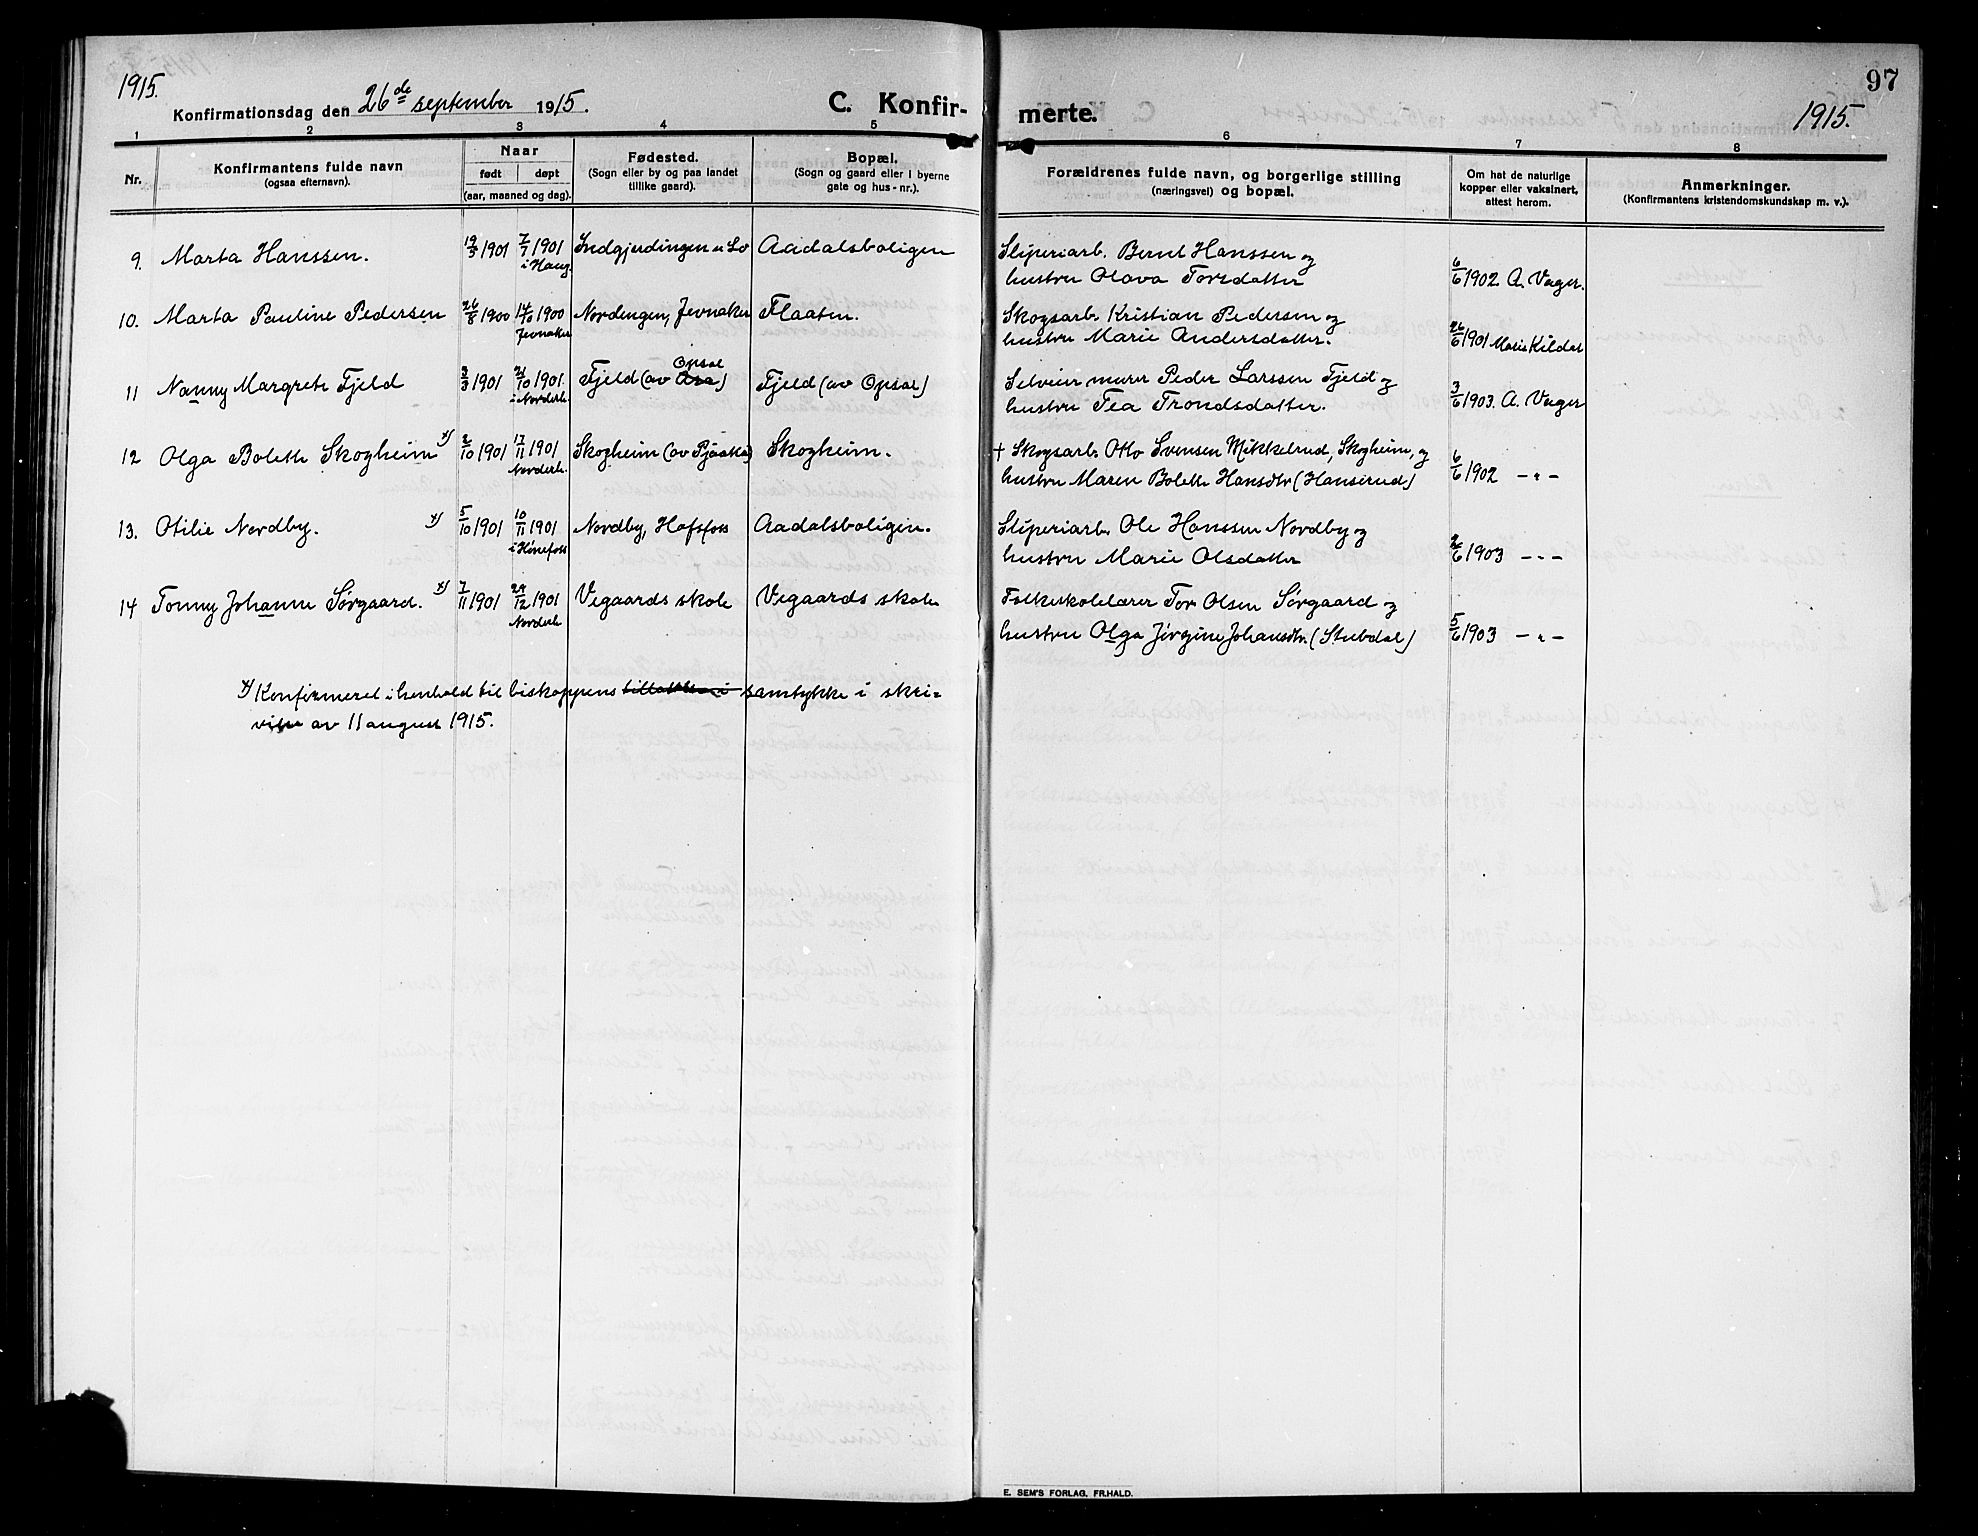 1915.
Konfirmationsdag den 26de september 1915.
C. Konfir-
merte.
97
1915.
1 2 3 4 5 6 7 8
Nr.
Konfirmantens fulde navn
(ogsaa efternavn).
Naar
født døpt
(aar, maaned og dag).
Fødested.
(Sogn eller by og paa landet
tillike gaard).
Bopæl.
(Sogn og gaard eller i byerne
gate og hus-nr.).
Forældrenes fulde navn, og borgerlige stilling
(næringsvei) og bopæl.
Om hat de naturlige
kopper eller vaksinert,
attest herom.
Anmerkninger.
(Konfirmantens kristendomskundskap m. v.).
9. Marta Hanssen. 19/3 1901 7/7 1901 Indgjerdingen u. Lo Aadalsboligen Sliperiarb. Bernt Hanssen og
i Haug. hustru Olava Torsdatter 6/6 1902 A. Unger.
10. Marta Pauline Pedersen 26/8 1900 14/10 1900 Nordengen, Jevnaker Flaaten. Skogsarb. Kristian Pedersen og
Jevnaker hustru Marie Andersdatter. 26/6 1901 Marie Kildal
11 Nanny Margrete Fjeld 3/3 1901 1901. Fjeld (av Asa Opsal) Fjeld (av Opsal) Selveier murer Peder Larssen Fjeld og
i Norderh. hustru Tea Trondsdatter. 3/6 1903. A. Unger
12 Olga Bolette Skogheim x) 2/10 1901 17/11 1901 Skogheim (av Pjaaka) Skogheim. + Skogsarb. Otto Svensen Mikkelrud, Skogheim, og
Norderh. hustru Maren Bolette Hansdtr (Hanserud) 6/6 1902 -"-
13. Otilie Nordby. x) 5/10 1901 10/11 1901 Nordby, Hofsfoss Aadalsboligen. Sliperiarb. Ole Hanssen Nordby og
i Hønefoss hustru Marie Olsdatter 2/6 1903 -"-
14 Tonny Johanne Sørgaard. x) 7/11 1901 29/12 1901 Vegaards skole Vegaards skole Folkeskolelærer Tor Olsen Sørgaard og
Norderh. hustru Olga Jørgine Johansdtr. (Stubdal) 5/6 1903 -"-
x) Konfirmeret i henhold til biskoppens samtykke i skri-
velse av 11 august 1915.
E. SEM'S FORLAG, FR.HALD.